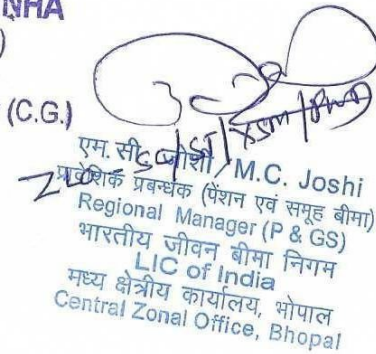 NHA
)
(C.G.)
एम. सी. जोशी / M.C. Joshi
प्रादेशिक प्रबन्धक (पेंशन एवं समूह बीमा)
Regional Manager (P & GS)
भारतीय जीवन बीमा निगम
LIC of India
मध्य क्षेत्रीय कार्यालय, भोपाल
Central Zonal Office, Bhopal